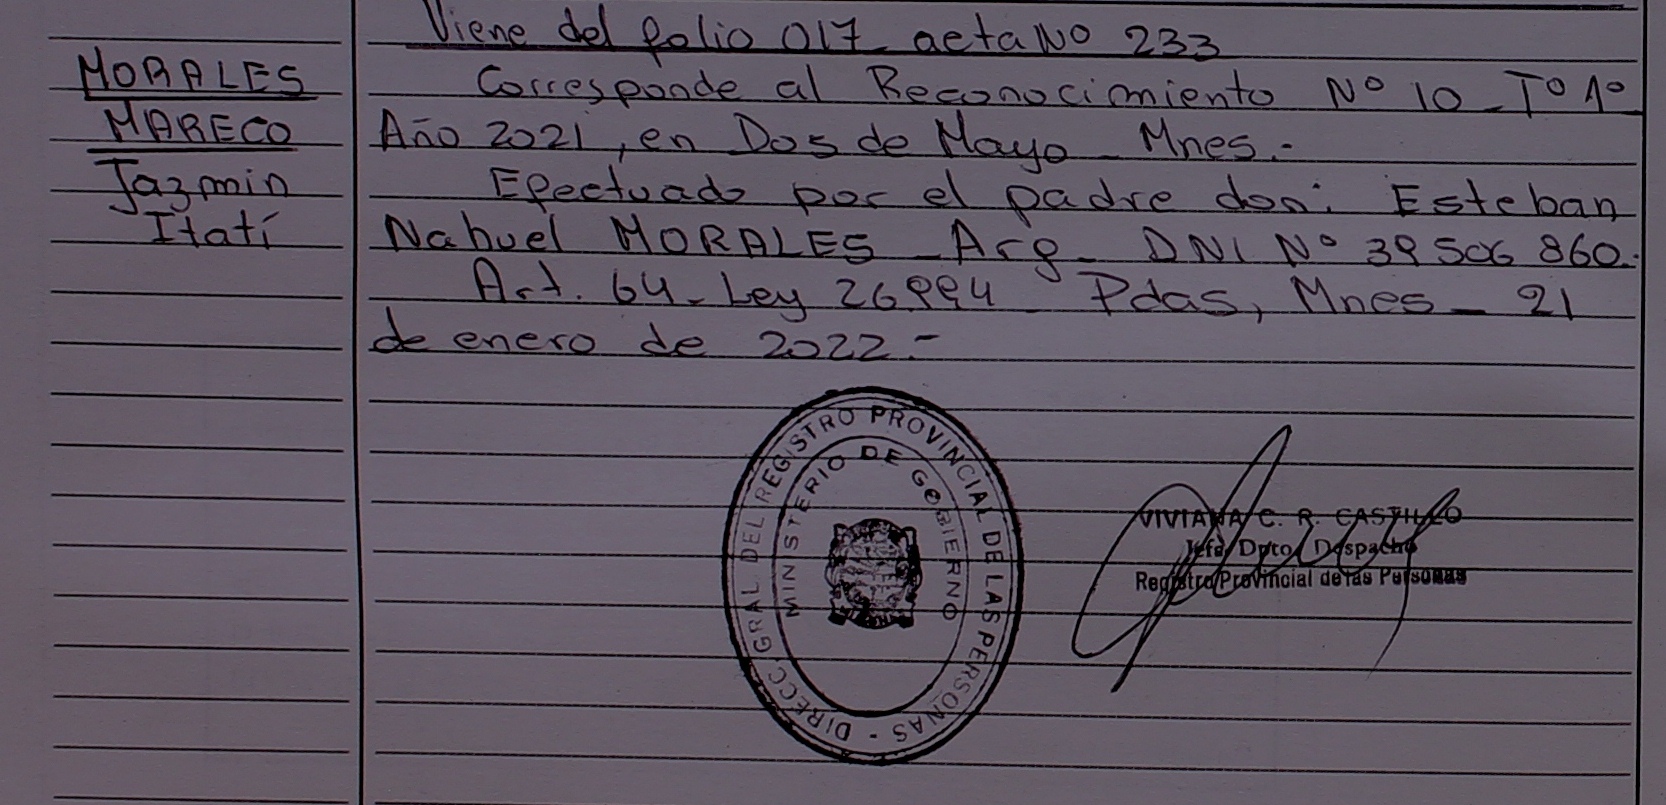 Viene del folio 017 acta No 233
MORALES
MARECO
Jazmin
Itatí
Corresponde al Reconocimiento Nº 10 - Tº 1º
Año 2021, en Dos de Mayo - Mnes.-
Efectuado por el padre don: Esteban
Nahuel MORALES - Arg - DNI Nº 39 506 860.-
Art. 64 - Ley 26.994 Pdas, Mnes - 21
de enero de 2022.-
DIRECC. GRAL. DEL REGISTRO PROVINCIAL DE LAS PERSONAS -
MINISTERIO DE GOBIERNO
VIVIANA C. R. CASTILLO
Jefa Dpto. Despacho
Registro Provincial de las Personas